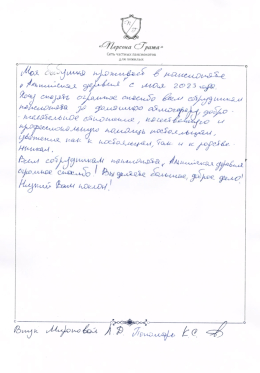 «Персона Грата»
Сеть частных пансионатов
для пожилых
Моя бабушка проживает в пансионате
"Английская деревня" с мая 2023 года
Хочу сказать огромное спасибо всем сотрудникам
пансионата за домашнюю атмосферу, добро-
желательное отношение, качественную и
профессиональную помощь постояльцам,
уважение как к постояльцам, так и к родстве-
нникам.
Всем сотрудникам пансионата
огромное спасибо! Вы делаете большое, доброе дело!
Низкий Вам поклон!
Внук Мироновой Л.Д. Пономарь К.С.